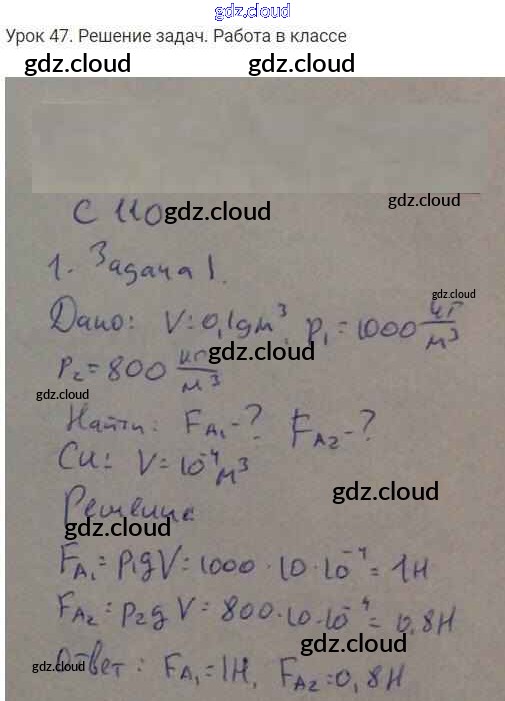 gdz.cloud
Урок 47. Решение задач. Работа в классе
gdz.cloud gdz.cloud
С 110 gdz.cloud
1. Задача 1.
gdz.cloud
Дано: V=0,1дм³, ρ₁=1000 кг/м³
gdz.cloud
ρ₂=800 кг/м³
gdz.cloud
Найти: F_A₁-? F_A₂-?
СИ: V=10⁻⁴м³
gdz.cloud
Решение
gdz.cloud
F_A₁=ρ₁gV=1000·10·10⁻⁴=1Н
F_A₂=ρ₂gV=800·10·10⁻⁴=0,8Н
gdz.cloud
gdz.cloud
Ответ: F_A₁=1Н, F_A₂=0,8Н